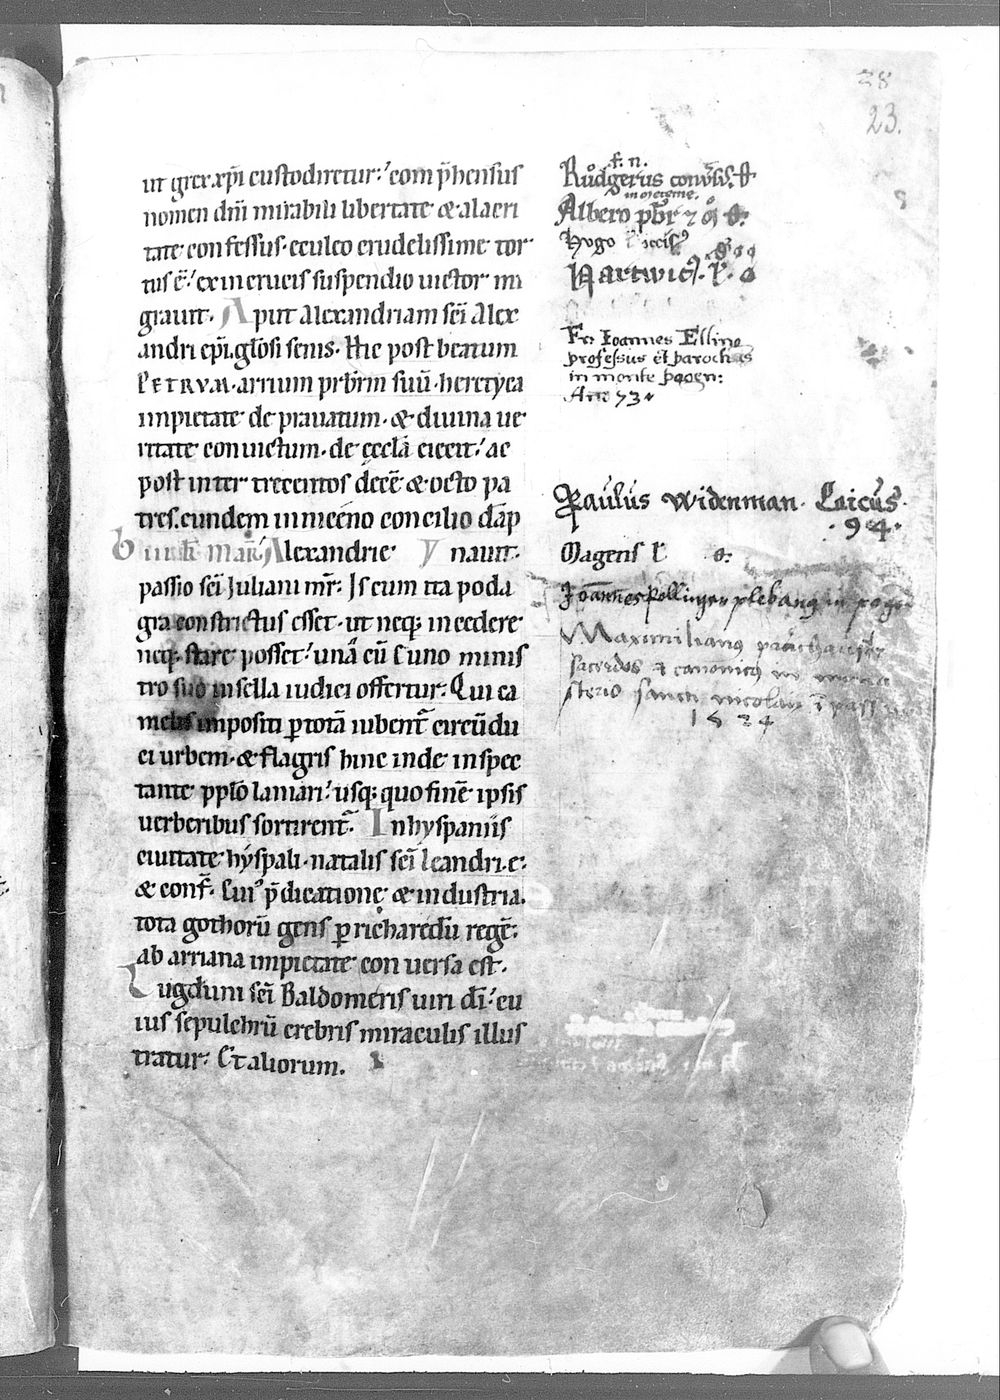 28
23.
ut grex xp̄i custodiretur: comp̄hensus
nomen dn̄i mirabili libertate & alacri
tate confessus. eculeo crudelissime tor
tus ē: ex in crucis suspendio uictor mi
grauit. Aput alexandriam sc̄i Alex
andri ep̄i. gl̄osi senis. Hic post beatum
PETRVM. arrium pr̄brm suū. heretyca
impietate deprauatum. & diuina ue
ritate conuictum. de ęccl̄a eiecit: ac
post inter trecentos decē & octo pa
tres. eundem in niceno concilio dāp
nauit.
b iiii kl̄ Mar. Alexandrie
passio sc̄i Juliani mr̄. Is cum ita poda
gra constrictus esset. ut neq; incedere
neq; stare posset: unā cū duob minis
tro suo in sella iudici offertur: Qui ca
melis impositi p totā iubent̄ circūdu
ci urbem. & flagris hinc inde inspec
tante pplo laniari: usq; quo finē ipsis
uerberibus sortirent̄. In hyspaniis
ciuitate hyspali. natalis sc̄i leandri. e.
& conf̄. Cui' p̄dicatione & industria.
tota gothorū gens p richaredū regē:
ab arriana impietate conuersa est.
Lugduni sc̄i Baldomeris uiri dī: cu
ius sepulchrū crebris miraculis illus
tratur: Et aliorum.
f. n.
Růdgerus conūs.
Albero pbr̄ 7 m̄
Hvgo
Hartwic'.
Fr. Ioannes Ellin
professus et parochus
in monte pogen:
An̄ 73
Paulus Widenman. Laicus.
.94.
Magens l
Joannes Pollinger plebanꝯ in pogen
Maximilianꝯ
sacerdos et canonicꝯ in mona
sterio sancti nicolai ī pass
1534